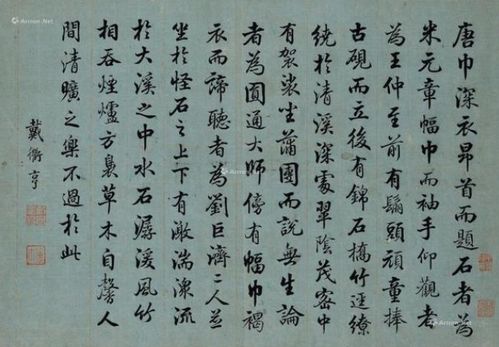 唐巾深衣昂首而題石者為
米元章幅巾而袖手仰觀者
為王仲至前有鬅頭頑童捧
古硯而立後有錦石橋竹逕繚
繞於清溪深處翠陰茂密中
有袈裟坐蒲團而說無生論
者為圓通大師傍有幅巾褐
衣而諦聽者為劉巨濟二人並
坐於怪石之上下有激湍潨流
於大溪之中水石潺湲風竹
相吞煙爐方裊草木自馨人
間清曠之樂不過於此
戴衢亨
Artron.Net